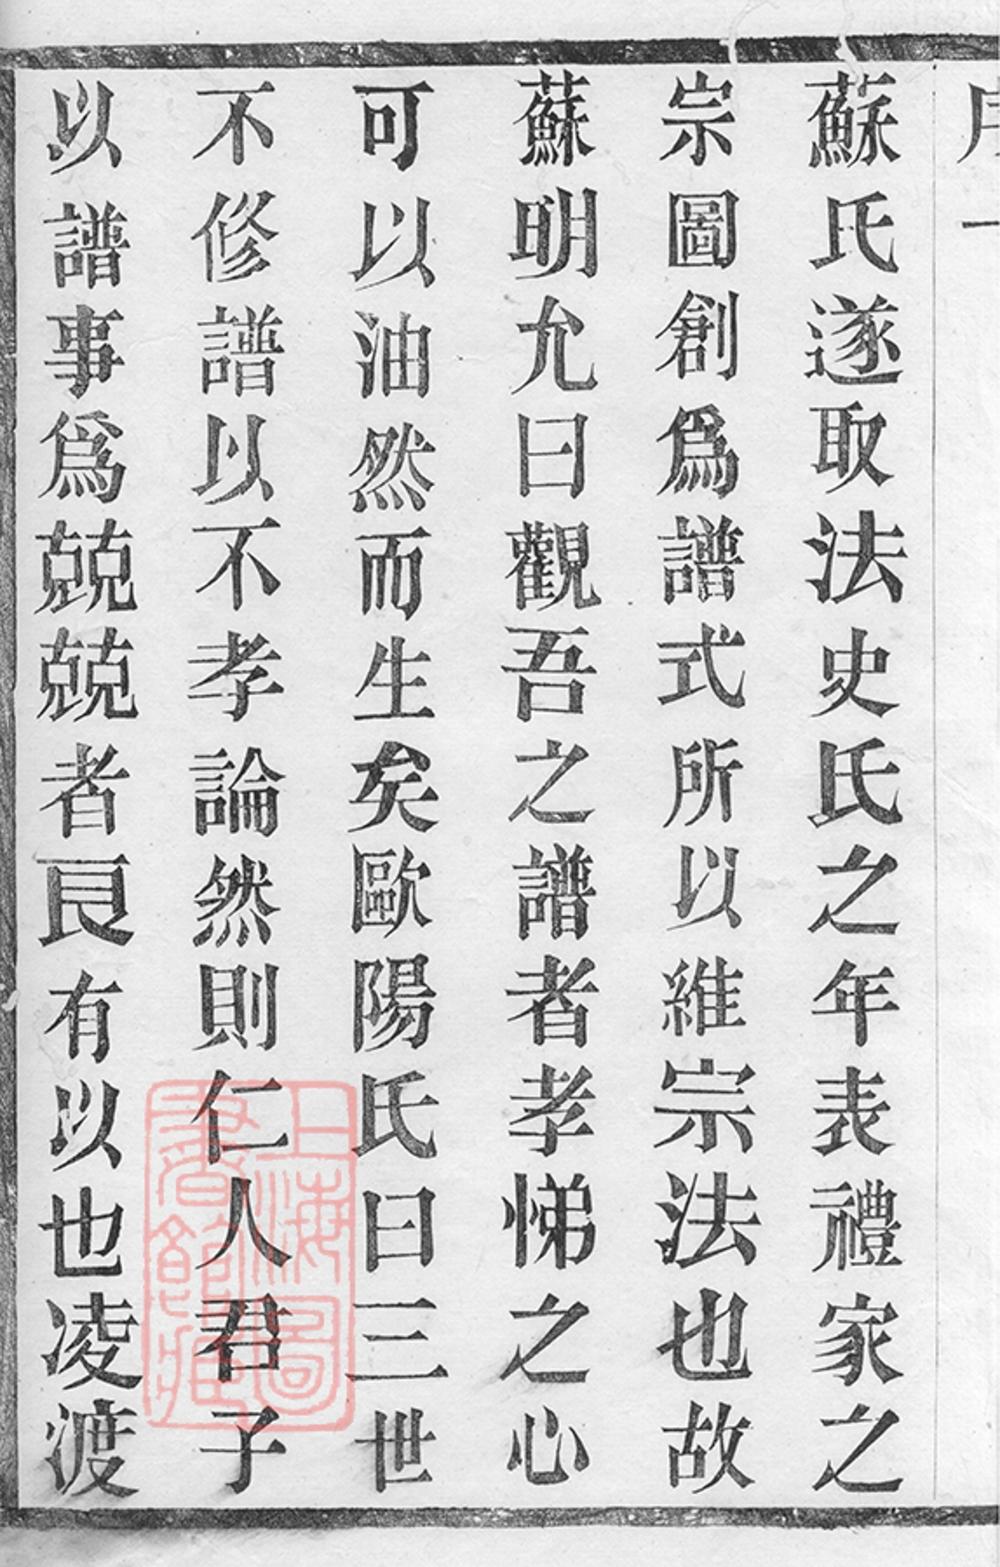 蘇氏遂取法史氏之年表禮家之
宗圖創爲譜式所以維宗法也故
蘇明允曰觀吾之譜者孝悌之心
可以油然而生矣歐陽氏曰三世
不修譜以不孝論然則仁人君子
以譜事爲兢兢者良有以也凌渡
上海圖
書館藏